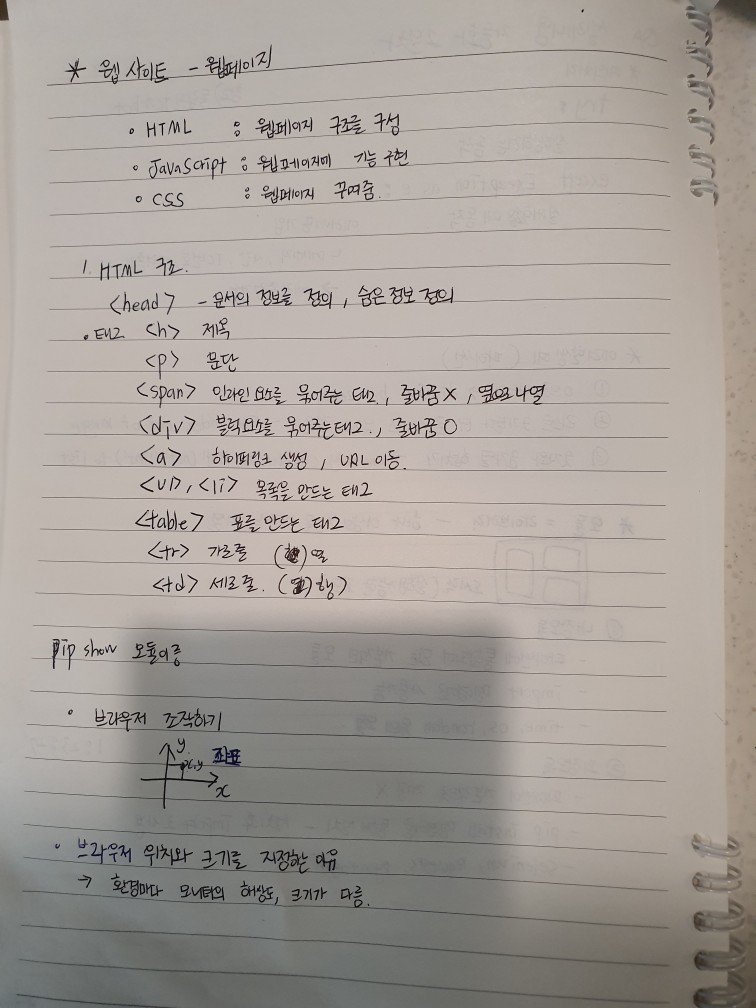 * 웹 사이트 - 웹페이지
• HTML : 웹페이지 구조를 구성
• JavaScript : 웹페이지에 기능 구현
• CSS : 웹페이지 꾸며줌.
1. HTML 구조.
<head> - 문서의 정보를 정의, 숨은 정보 정의
• 태그 <h> 제목
<p> 문단
<span> 인라인 요소를 묶어주는 태그, 줄바꿈 X, 옆으로 나열
<div> 블럭요소를 묶어주는 태그., 줄바꿈 O
<a> 하이퍼링크 생성, URL 이동.
<ul>, <li> 목록을 만드는 태그
<table> 표를 만드는 태그
<tr> 가로줄 ( ) 열
<td> 세로줄. ( ) 행)
pip show 모듈이름
• 브라우저 조작하기
y. 좌표
x,y
x
• 브라우저 위치와 크기를 지정하는 이유
→ 환경마다 모니터의 해상도, 크기가 다름.